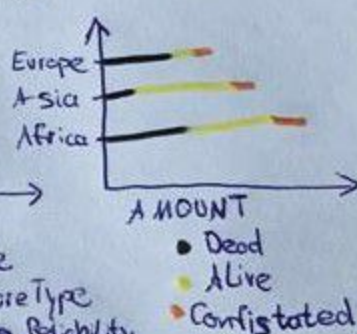 Europe
Asia
Africa
AMOUNT
Dead
ALive
Type
Confistated